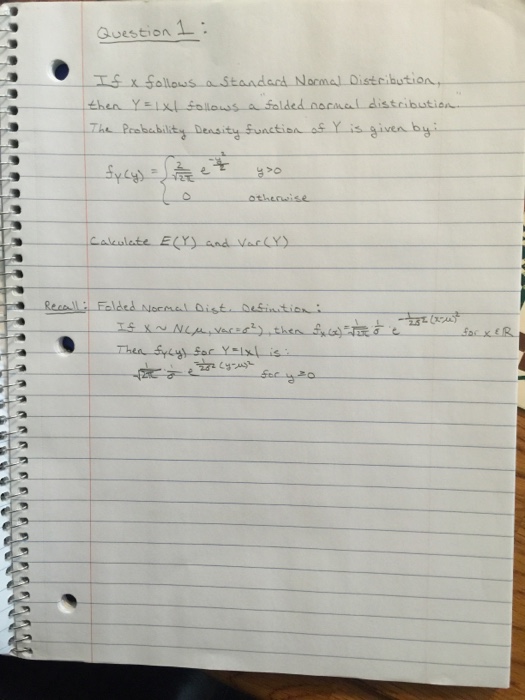 Question 1:
If x follows a Standard Normal Distribution,
then Y=|x| follows a "folded normal distribution.
The Probability Density function of Y is given by:
fY(y) = { 2/√2π e^(-y²/2) y>0
0 otherwise
Calculate E(Y) and Var(Y)
Recall: Folded Normal Dist. Definition:
If X ~ N(μ, var=σ²), then fx(x)=1/√2π 1/σ e^(-1/2σ² (x-μ)²) for x ∈ ℝ
Then fy(y) for Y=|x| is:
1/√2π 1/σ e^(-1/2σ² (y-μ)²) for y≥0